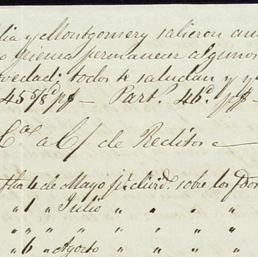 lia y Montgomery salieron an
o piensa permanecer algunos
ovedad; todos te saludan y y
45 5/8 p$ — Part.ˢ 46ᵈ. p$ —
C.ª a C/ de Reditos
4 de Mayo p.ʳ divid.ˢ sobre los
" 1 " Julio " " " "
" " " " " " "
" 6 " Agosto " " " "